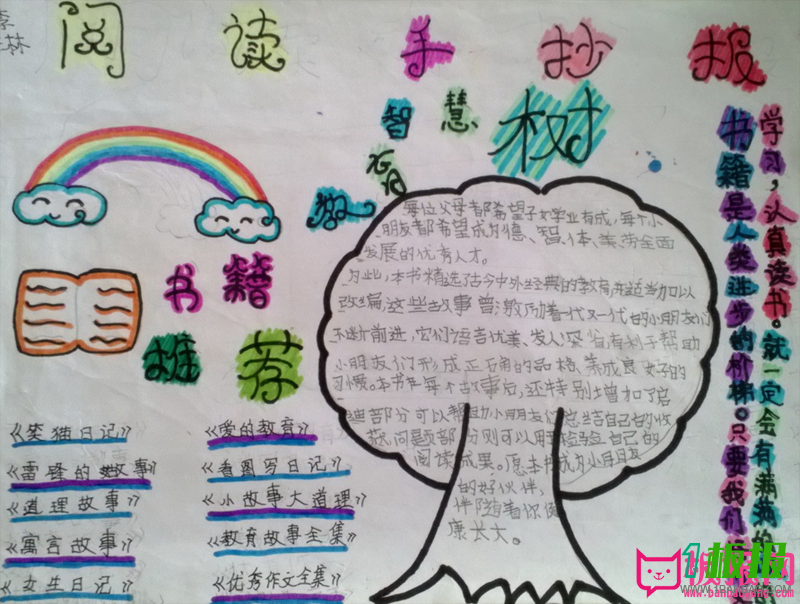 李
林
阅读手抄报
智慧树
教育
书籍
推荐
《笑猫日记》
《雷锋的故事》
《道理故事》
《寓言故事》
《女生日记》
《爱的教育》
《看图写日记》
《小故事大道理》
《教育故事全集》
《优秀作文全集》
每位父母都希望子女学业有成,每个小
朋友都希望成为德、智、体、美、劳全面
发展的优秀人才。
为此,本书精选了古今中外经典的教育,并适当加以
改编,这些故事曾激励着一代又一代的小朋友们
不断前进,它们语言优美、发人深省有利于帮助
小朋友们形成正确的品格、养成良好的
习惯。本书在每个故事后,还特别增加了启
迪部分可以帮助小朋友们总结自己的收
获,问题部分则可以用来检验自己的
阅读成果。愿本书成为小朋友
的好伙伴,
伴随着你健
康长大。
书籍是人类进步的阶梯。只要我们
学习,认真读书。就一定会有满满的
1板报网